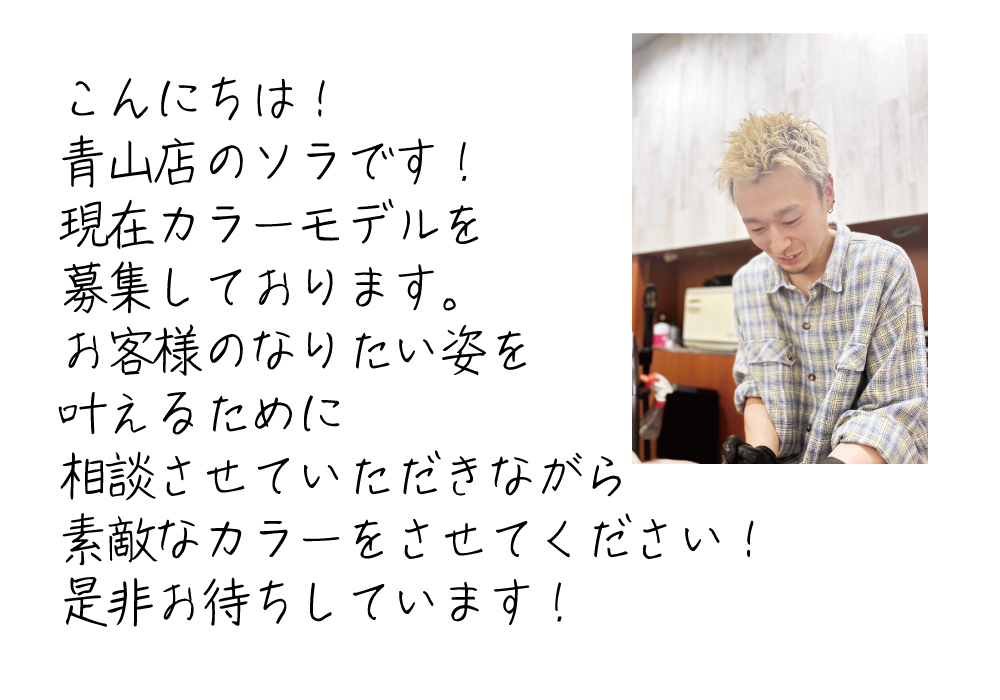 こんにちは！
青山店のソラです！
現在カラーモデルを
募集しております。
お客様のなりたい姿を
叶えるために
相談させていただきながら
素敵なカラーをさせてください！
是非お待ちしています！